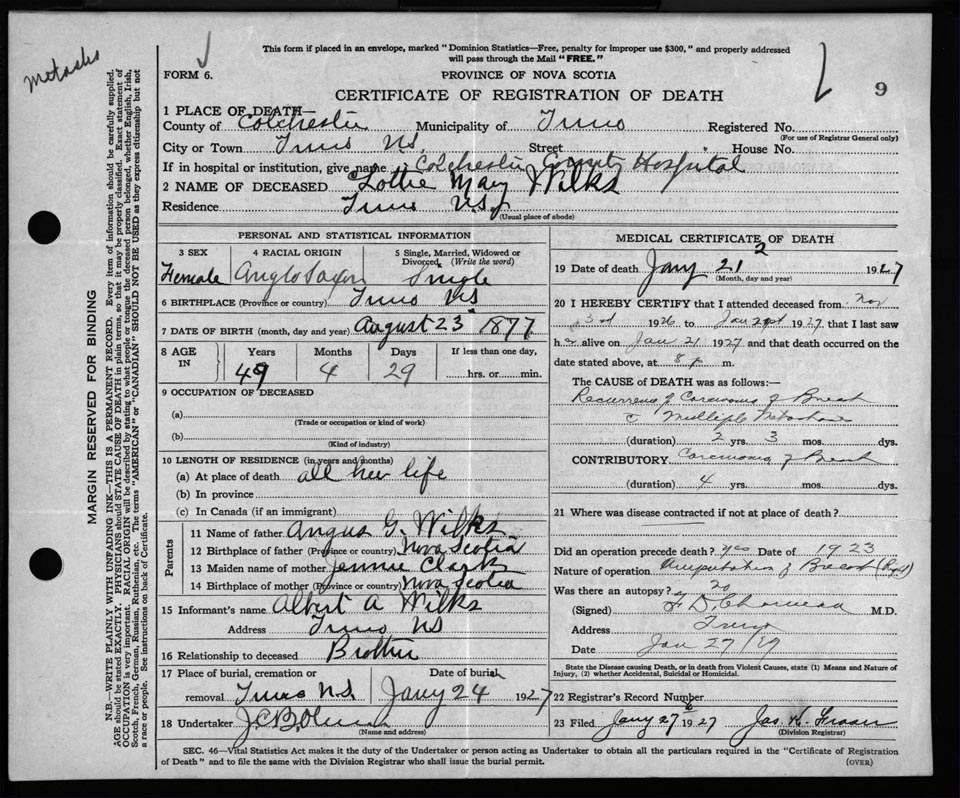 This form if placed in an envelope, marked "Dominion Statistics—Free, penalty for improper use $300," and properly addressed
will pass through the Mail "FREE."
FORM 6.
PROVINCE OF NOVA SCOTIA
9
CERTIFICATE OF REGISTRATION OF DEATH
1 PLACE OF DEATH—
County of Colchester Municipality of Truro Registered No.
(For use of Registrar General only)
City or Town Truro N.S. Street House No.
If in hospital or institution, give name Colchester County Hospital
2 NAME OF DECEASED Lottie May Wilks
Residence Truro N.S.
(Usual place of abode)
MARGIN RESERVED FOR BINDING
N.B.—WRITE PLAINLY WITH UNFADING INK—THIS IS A PERMANENT RECORD. Every item of information should be carefully supplied.
AGE should be stated EXACTLY. PHYSICIANS should STATE CAUSE OF DEATH in plain terms, so that it may be properly classified. Exact statement of
OCCUPATION is very important. RACIAL ORIGIN will be described by stating to what people or tongue the deceased person belonged, whether English, Irish,
Scotch, French, German, Russian, Ruthenian, etc. The terms "AMERICAN" or "CANADIAN" SHOULD NOT BE USED as they express citizenship but not
a race or people. See instructions on back of Certificate.
PERSONAL AND STATISTICAL INFORMATION
3 SEX
Female
4 RACIAL ORIGIN
Anglo Saxon
5 Single, Married, Widowed or
Divorced, (Write the word)
Single
6 BIRTHPLACE (Province or country) Truro NS
7 DATE OF BIRTH (month, day and year) August 23 1877
8 AGE IN
Years Months Days If less than one day,
49 4 29 hrs. or min.
9 OCCUPATION OF DECEASED
(a)
(Trade or occupation or kind of work)
(b)
(Kind of industry)
10 LENGTH OF RESIDENCE (in years and months)
(a) At place of death all her life
(b) In province
(c) In Canada (if an immigrant)
Parents
11 Name of father Angus G. Wilks
12 Birthplace of father (Province or country) Nova Scotia
13 Maiden name of mother Jennie Clark
14 Birthplace of mother (Province or country) Nova Scotia
15 Informant's name Albert A Wilks
Address Truro NS
16 Relationship to deceased Brother
17 Place of burial, cremation or Date of burial
removal Truro N.S. Jany 24 1927
18 Undertaker
(Name and address)
MEDICAL CERTIFICATE OF DEATH
19 Date of death Jany 21 1927
(Month, day and year)
20 I HEREBY CERTIFY that I attended deceased from Nov
3rd 1926 to Jan 21st 1927, that I last saw
her alive on Jan 21 1927 and that death occurred on the
date stated above, at 8 p m.
The CAUSE of DEATH was as follows:—
Recurrence of Carcinoma of Breast
c Multiple
(duration) 2 yrs. 3 mos. dys.
CONTRIBUTORY Carcinoma of Breast
(duration) 4 yrs. mos. dys.
21 Where was disease contracted if not at place of death?
Did an operation precede death? yes Date of 1923
Nature of operation Amputation of Breast (Right)
Was there an autopsy? no
(Signed) M.D.
Address Truro
Date Jan 27/27
State the Disease causing Death, or in death from Violent Causes, state (1) Means and Nature of
Injury, (2) whether Accidental, Suicidal or Homicidal.
22 Registrar's Record Number 6
23 Filed Jany 27 1927 Jas. K. Fraser
(Division Registrar)
SEC. 46—Vital Statistics Act makes it the duty of the Undertaker or person acting as Undertaker to obtain all the particulars required in the "Certificate of Registration
of Death" and to file the same with the Division Registrar who shall issue the burial permit.
(OVER)